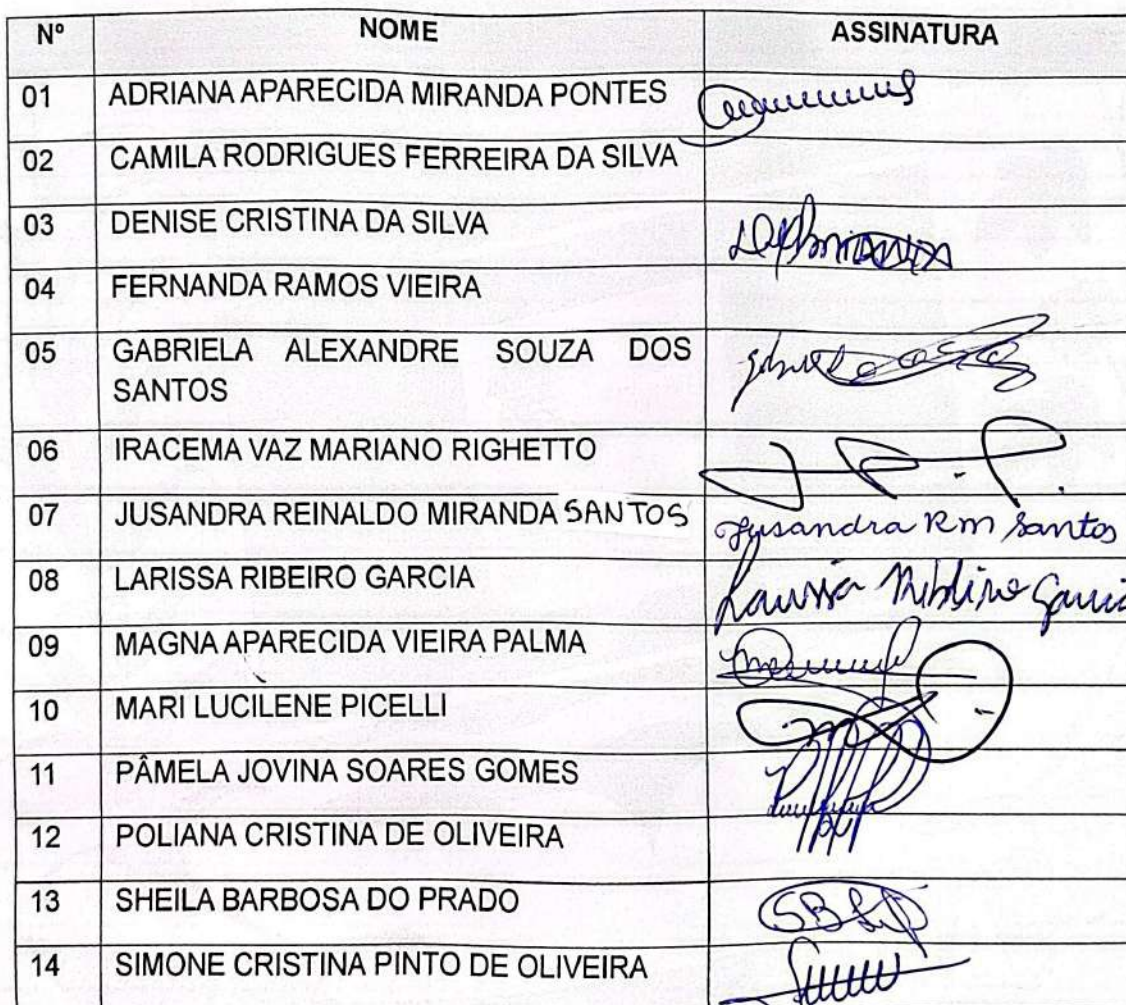 Nº NOME ASSINATURA
01 ADRIANA APARECIDA MIRANDA PONTES
02 CAMILA RODRIGUES FERREIRA DA SILVA
03 DENISE CRISTINA DA SILVA
04 FERNANDA RAMOS VIEIRA
05 GABRIELA ALEXANDRE SOUZA DOS
SANTOS
06 IRACEMA VAZ MARIANO RIGHETTO
07 JUSANDRA REINALDO MIRANDA SANTOS Jusandra R m Santos
08 LARISSA RIBEIRO GARCIA Larissa Ribeiro Garcia
09 MAGNA APARECIDA VIEIRA PALMA
10 MARI LUCILENE PICELLI
11 PÂMELA JOVINA SOARES GOMES
12 POLIANA CRISTINA DE OLIVEIRA
13 SHEILA BARBOSA DO PRADO
14 SIMONE CRISTINA PINTO DE OLIVEIRA